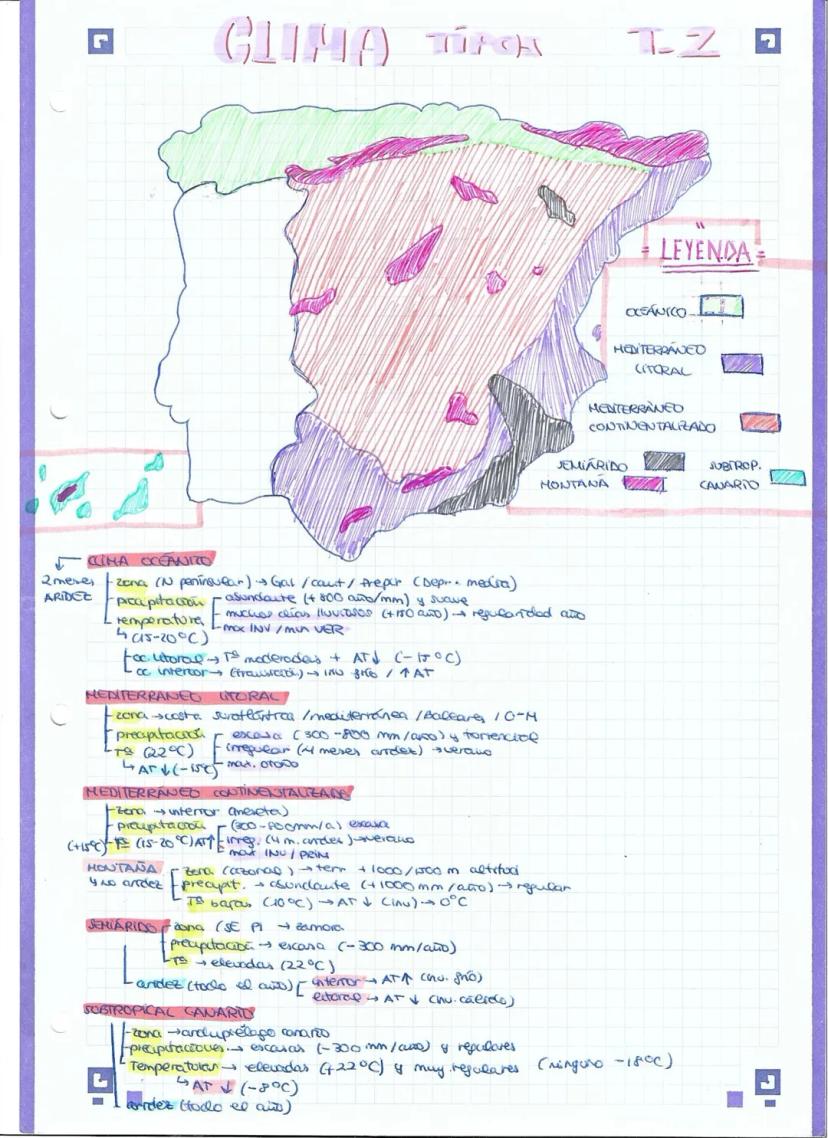 CLIMA TIPOS T-2
"LEYENDA"
OCEÁNICO
MEDITERRÁNEO
LITORAL
MEDITERRÁNEO
CONTINENTALIZADO
SEMIÁRIDO SUBTROP.
MONTAÑA CANARIO
CLIMA OCEÁNICO
2 meses
ARIDEZ
zona (N peninsular) → Gal / cant / (Depr. media)
precipitación abundante (+800 año/mm) y suave
muchos días lluviosos (+150 año) → regularidad año
temperatura max INV / min VER
↳ (15-20ºC)
oc litoral → Tª moderadas + AT↓ (-15ºC)
oc interior → (transición) → inv frío / ↑AT
MEDITERRÁNEO LITORAL
zona → costa suratlántica / mediterránea / Baleares / C-M
precipitación escasa (300-800 mm/año) y torrencial
Tª (22ºC) irregular (~4 meses aridez) → verano
↳ AT↓ (-15ºC) max. otoño
MEDITERRÁNEO CONTINENTALIZADO
zona → interior (meseta)
precipitación (300-800mm/a) escasa
(+15ºC) Tª (15-20ºC) AT↑ irreg. (4 m. aridez) → verano
max INV / PRIM
MONTAÑA zona (azonal) → terr +1000/1500 m altitud
↳ no aridez precipit. → abundante (+1000 mm/año) → regular
Tª bajas (10ºC) → AT↓ (inv) → 0ºC
SEMIÁRIDO zona (SE PI → zamora
precipitación → escasa (-300 mm/año)
Tª → elevadas (22ºC)
aridez (todo el año) interior → AT↑ (inv. frío)
litoral → AT↓ (inv. cálido)
SUBTROPICAL CANARIO
zona → archipiélago canario
precipitaciones → escasas (-300 mm/año) y regulares
Temperaturas → elevadas (+22ºC) y muy regulares (ninguno -18ºC)
↳ AT↓ (-8ºC)
aridez (todo el año)